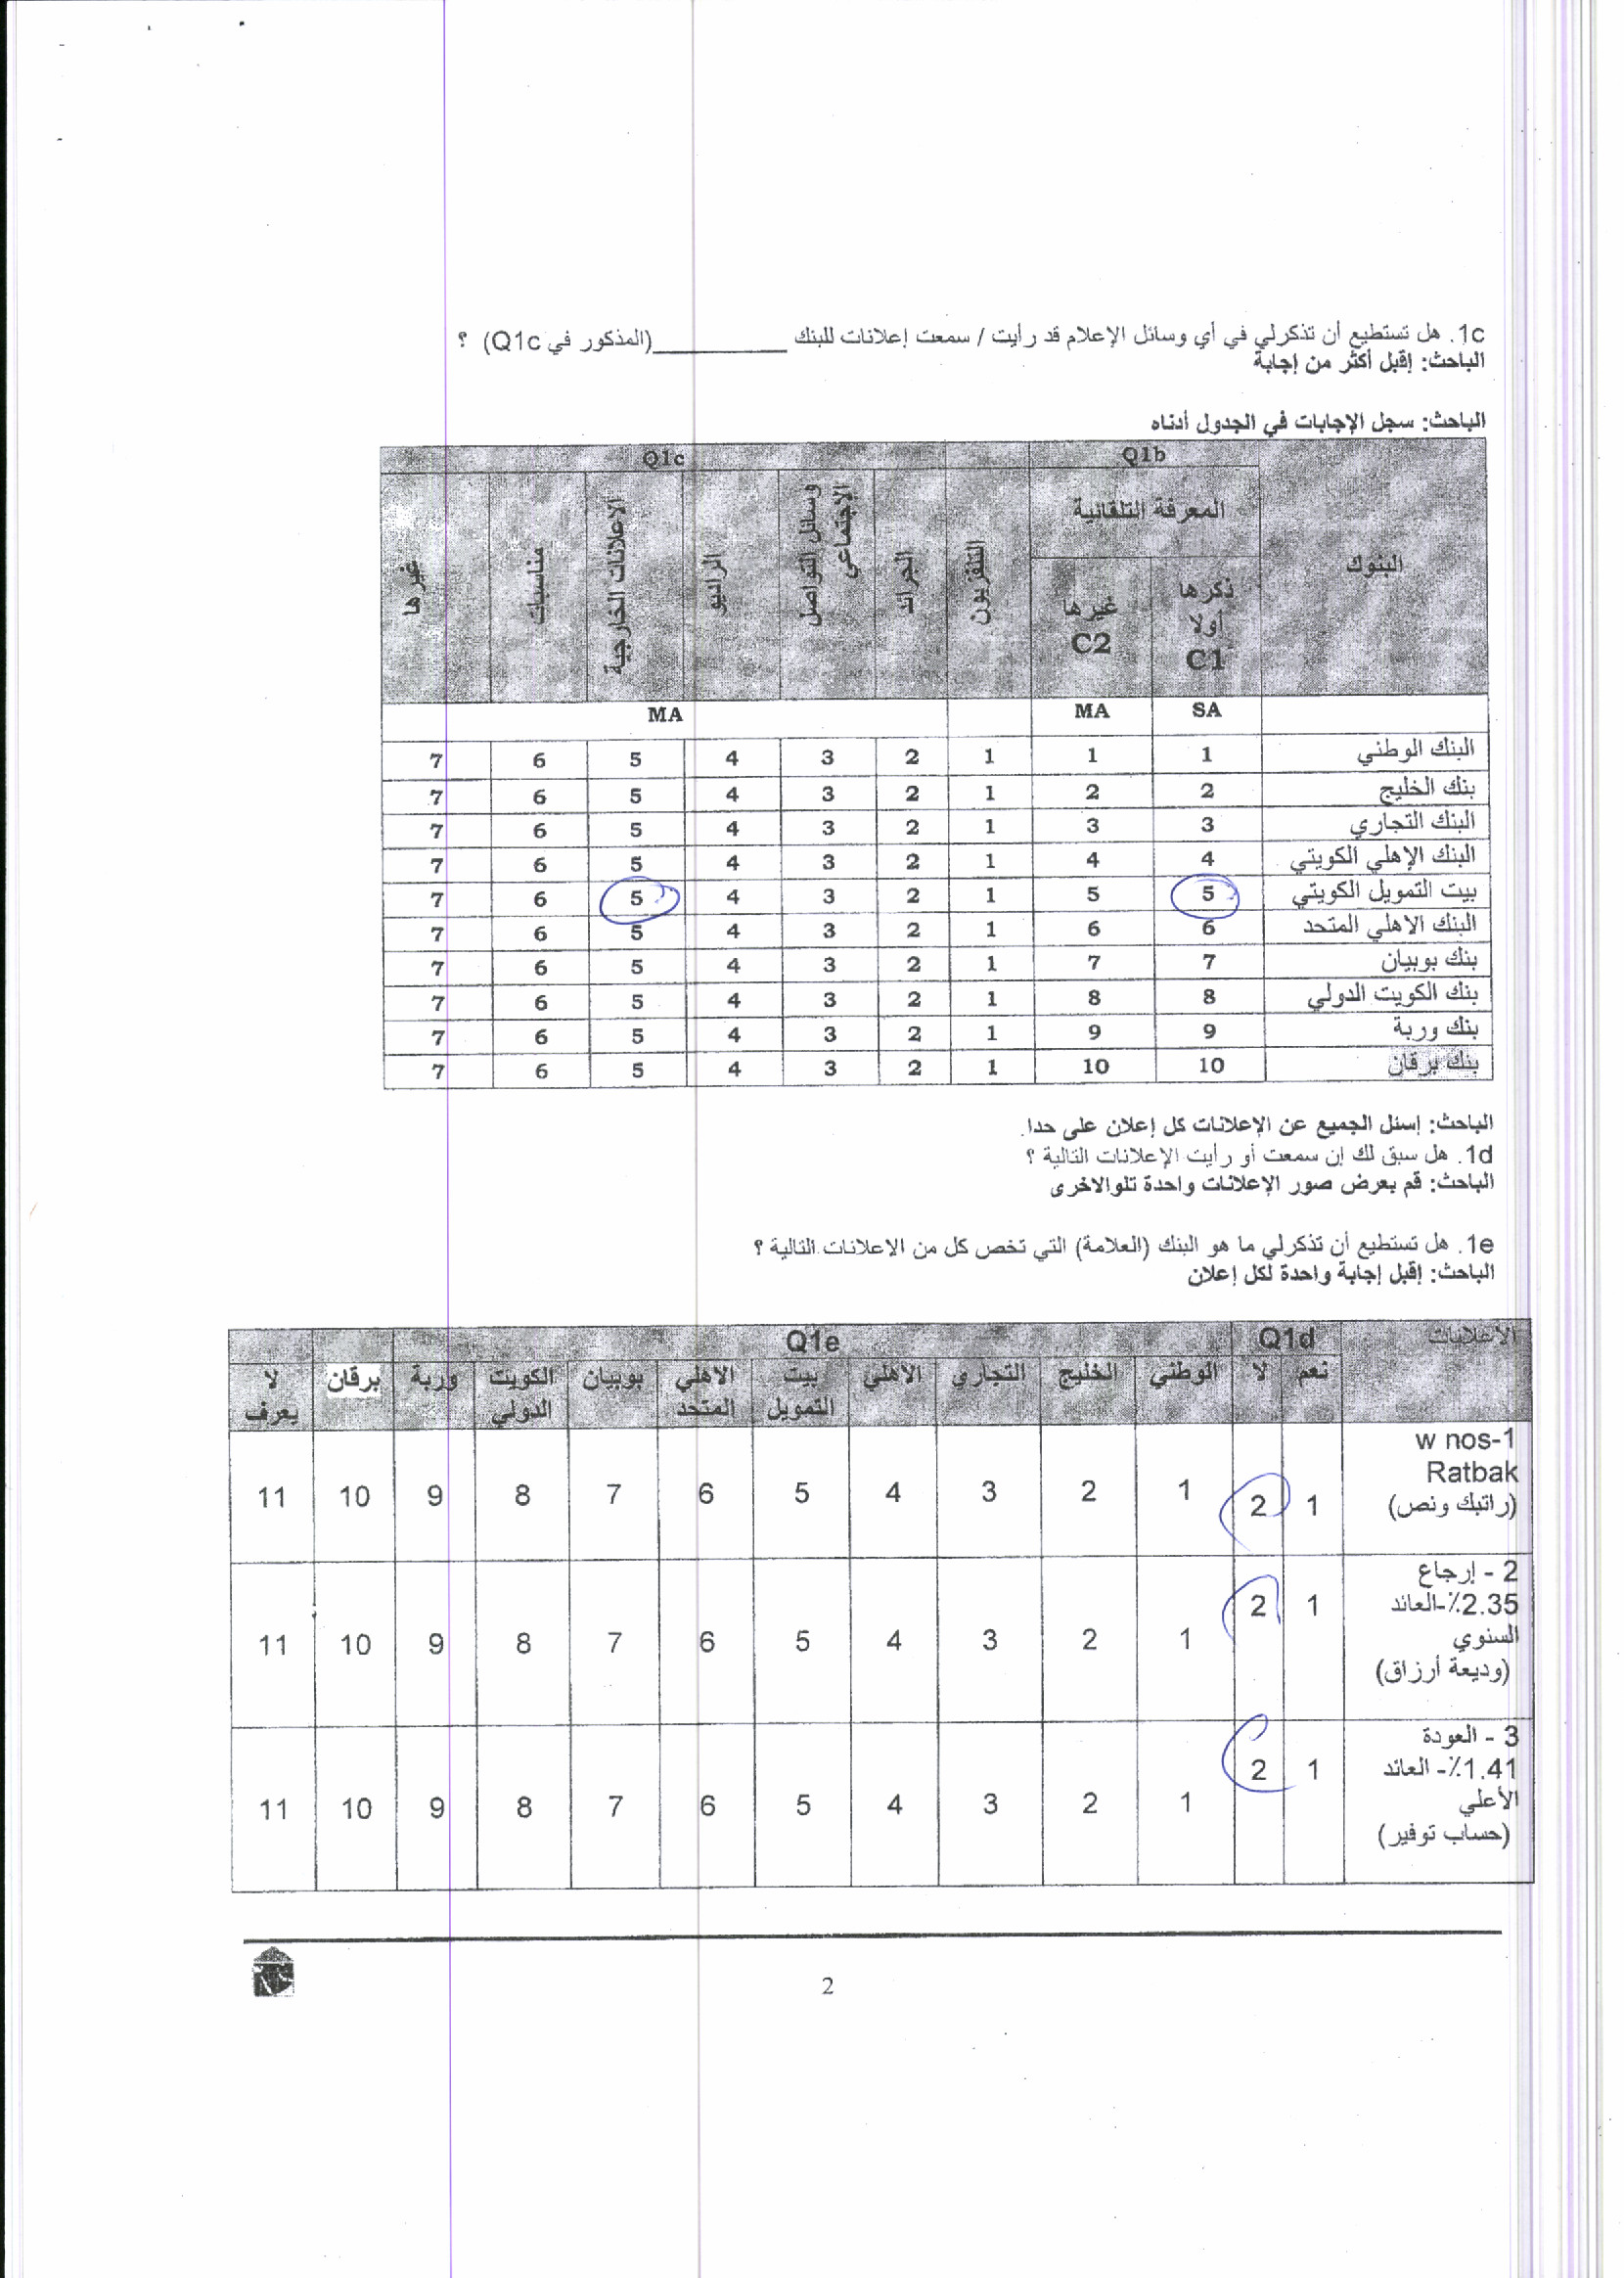 1c. هل تستطيع أن تذكرلي في أي وسائل الإعلام قد رأيت / سمعت إعلانات للبنك ____________(المذكور في Q1c) ؟
الباحث: إقبل أكثر من إجابة
الباحث: سجل الإجابات في الجدول أدناه
البنوك Q1b Q1c
المعرفة التلقائية
ذكرها أولا C1 غيرها C2 التلفزيون الجرائد وسائل التواصل الإجتماعي الراديو الاعلانات الخارجية مناسبات غيرها
SA MA MA
البنك الوطني 1 1 1 2 3 4 5 6 7
بنك الخليج 2 2 1 2 3 4 5 6 7
البنك التجاري 3 3 1 2 3 4 5 6 7
البنك الإهلي الكويتي 4 4 1 2 3 4 5 6 7
بيت التمويل الكويتي 5 5 1 2 3 4 5 6 7
البنك الاهلي المتحد 6 6 1 2 3 4 5 6 7
بنك بوبيان 7 7 1 2 3 4 5 6 7
بنك الكويت الدولي 8 8 1 2 3 4 5 6 7
بنك وربة 9 9 1 2 3 4 5 6 7
بنك برقان 10 10 1 2 3 4 5 6 7
الباحث: إسئل الجميع عن الإعلانات كل إعلان على حدا.
1d. هل سبق لك إن سمعت أو رأيت الإعلانات التالية ؟
الباحث: قم بعرض صور الإعلانات واحدة تلوالاخرى
1e. هل تستطيع أن تذكرلي ما هو البنك (العلامة) التي تخص كل من الاعلانات التالية ؟
الباحث: إقبل إجابة واحدة لكل إعلان
الأعلانات Q1d Q1e
نعم لا الوطني الخليج التجاري الاهلي بيت التمويل الاهلي المتحد بوبيان الكويت الدولي وربة برقان لا يعرف
w nos-1
Ratbak
(راتبك ونص) 1 2 1 2 3 4 5 6 7 8 9 10 11
2 - إرجاع
2.35٪-العائد
السنوي
(وديعة أرزاق) 1 2 1 2 3 4 5 6 7 8 9 10 11
3 - العودة
1.41٪- العائد
الأعلي
(حساب توفير) 1 2 1 2 3 4 5 6 7 8 9 10 11
2